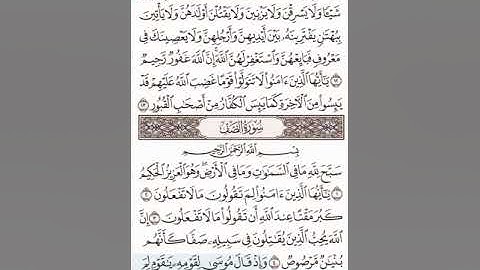 شَيْـًٔا وَلَا يَسْرِقْنَ وَلَا يَزْنِينَ وَلَا يَقْتُلْنَ أَوْلَٰدَهُنَّ وَلَا يَأْتِينَ
بِبُهْتَٰنٍ يَفْتَرِينَهُۥ بَيْنَ أَيْدِيهِنَّ وَأَرْجُلِهِنَّ وَلَا يَعْصِينَكَ فِى
مَعْرُوفٍ فَبَايِعْهُنَّ وَٱسْتَغْفِرْ لَهُنَّ ٱللَّهَ إِنَّ ٱللَّهَ غَفُورٌ رَّحِيمٌ
١٢ يَٰٓأَيُّهَا ٱلَّذِينَ ءَامَنُوا۟ لَا تَتَوَلَّوْا۟ قَوْمًا غَضِبَ ٱللَّهُ عَلَيْهِمْ قَدْ
يَئِسُوا۟ مِنَ ٱلْءَاخِرَةِ كَمَا يَئِسَ ٱلْكُفَّارُ مِنْ أَصْحَٰبِ ٱلْقُبُورِ ١٣
سُورَةُ الصَّفِّ
بِسْمِ ٱللَّهِ ٱلرَّحْمَٰنِ ٱلرَّحِيمِ
سَبَّحَ لِلَّهِ مَا فِى ٱلسَّمَٰوَٰتِ وَمَا فِى ٱلْأَرْضِ وَهُوَ ٱلْعَزِيزُ ٱلْحَكِيمُ
١ يَٰٓأَيُّهَا ٱلَّذِينَ ءَامَنُوا۟ لِمَ تَقُولُونَ مَا لَا تَفْعَلُونَ ٢
كَبُرَ مَقْتًا عِندَ ٱللَّهِ أَن تَقُولُوا۟ مَا لَا تَفْعَلُونَ ٣ إِنَّ
ٱللَّهَ يُحِبُّ ٱلَّذِينَ يُقَٰتِلُونَ فِى سَبِيلِهِۦ صَفًّا كَأَنَّهُم
بُنْيَٰنٌ مَّرْصُوصٌ ٤ وَإِذْ قَالَ مُوسَىٰ لِقَوْمِهِۦ يَٰقَوْمِ لِمَ